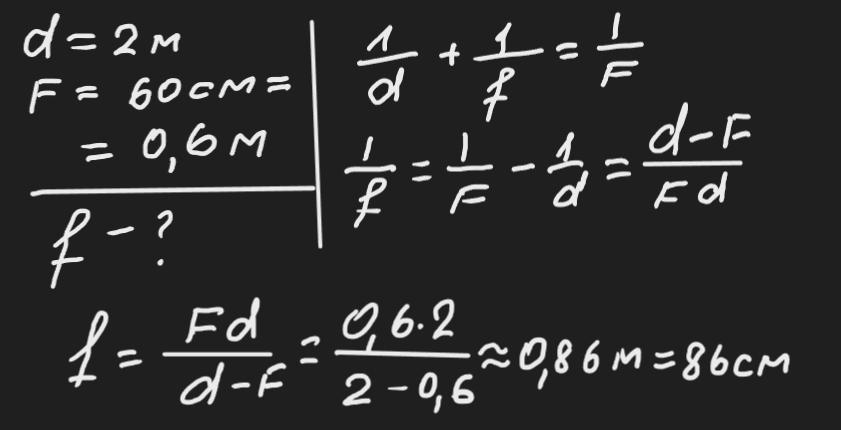 d = 2 м
F = 60 см =
= 0,6 м
f - ?
1/d + 1/f = 1/F
1/f = 1/F - 1/d = d-F/Fd
f = Fd/d-F = 0,6·2/2-0,6 ≈ 0,86 м = 86 см